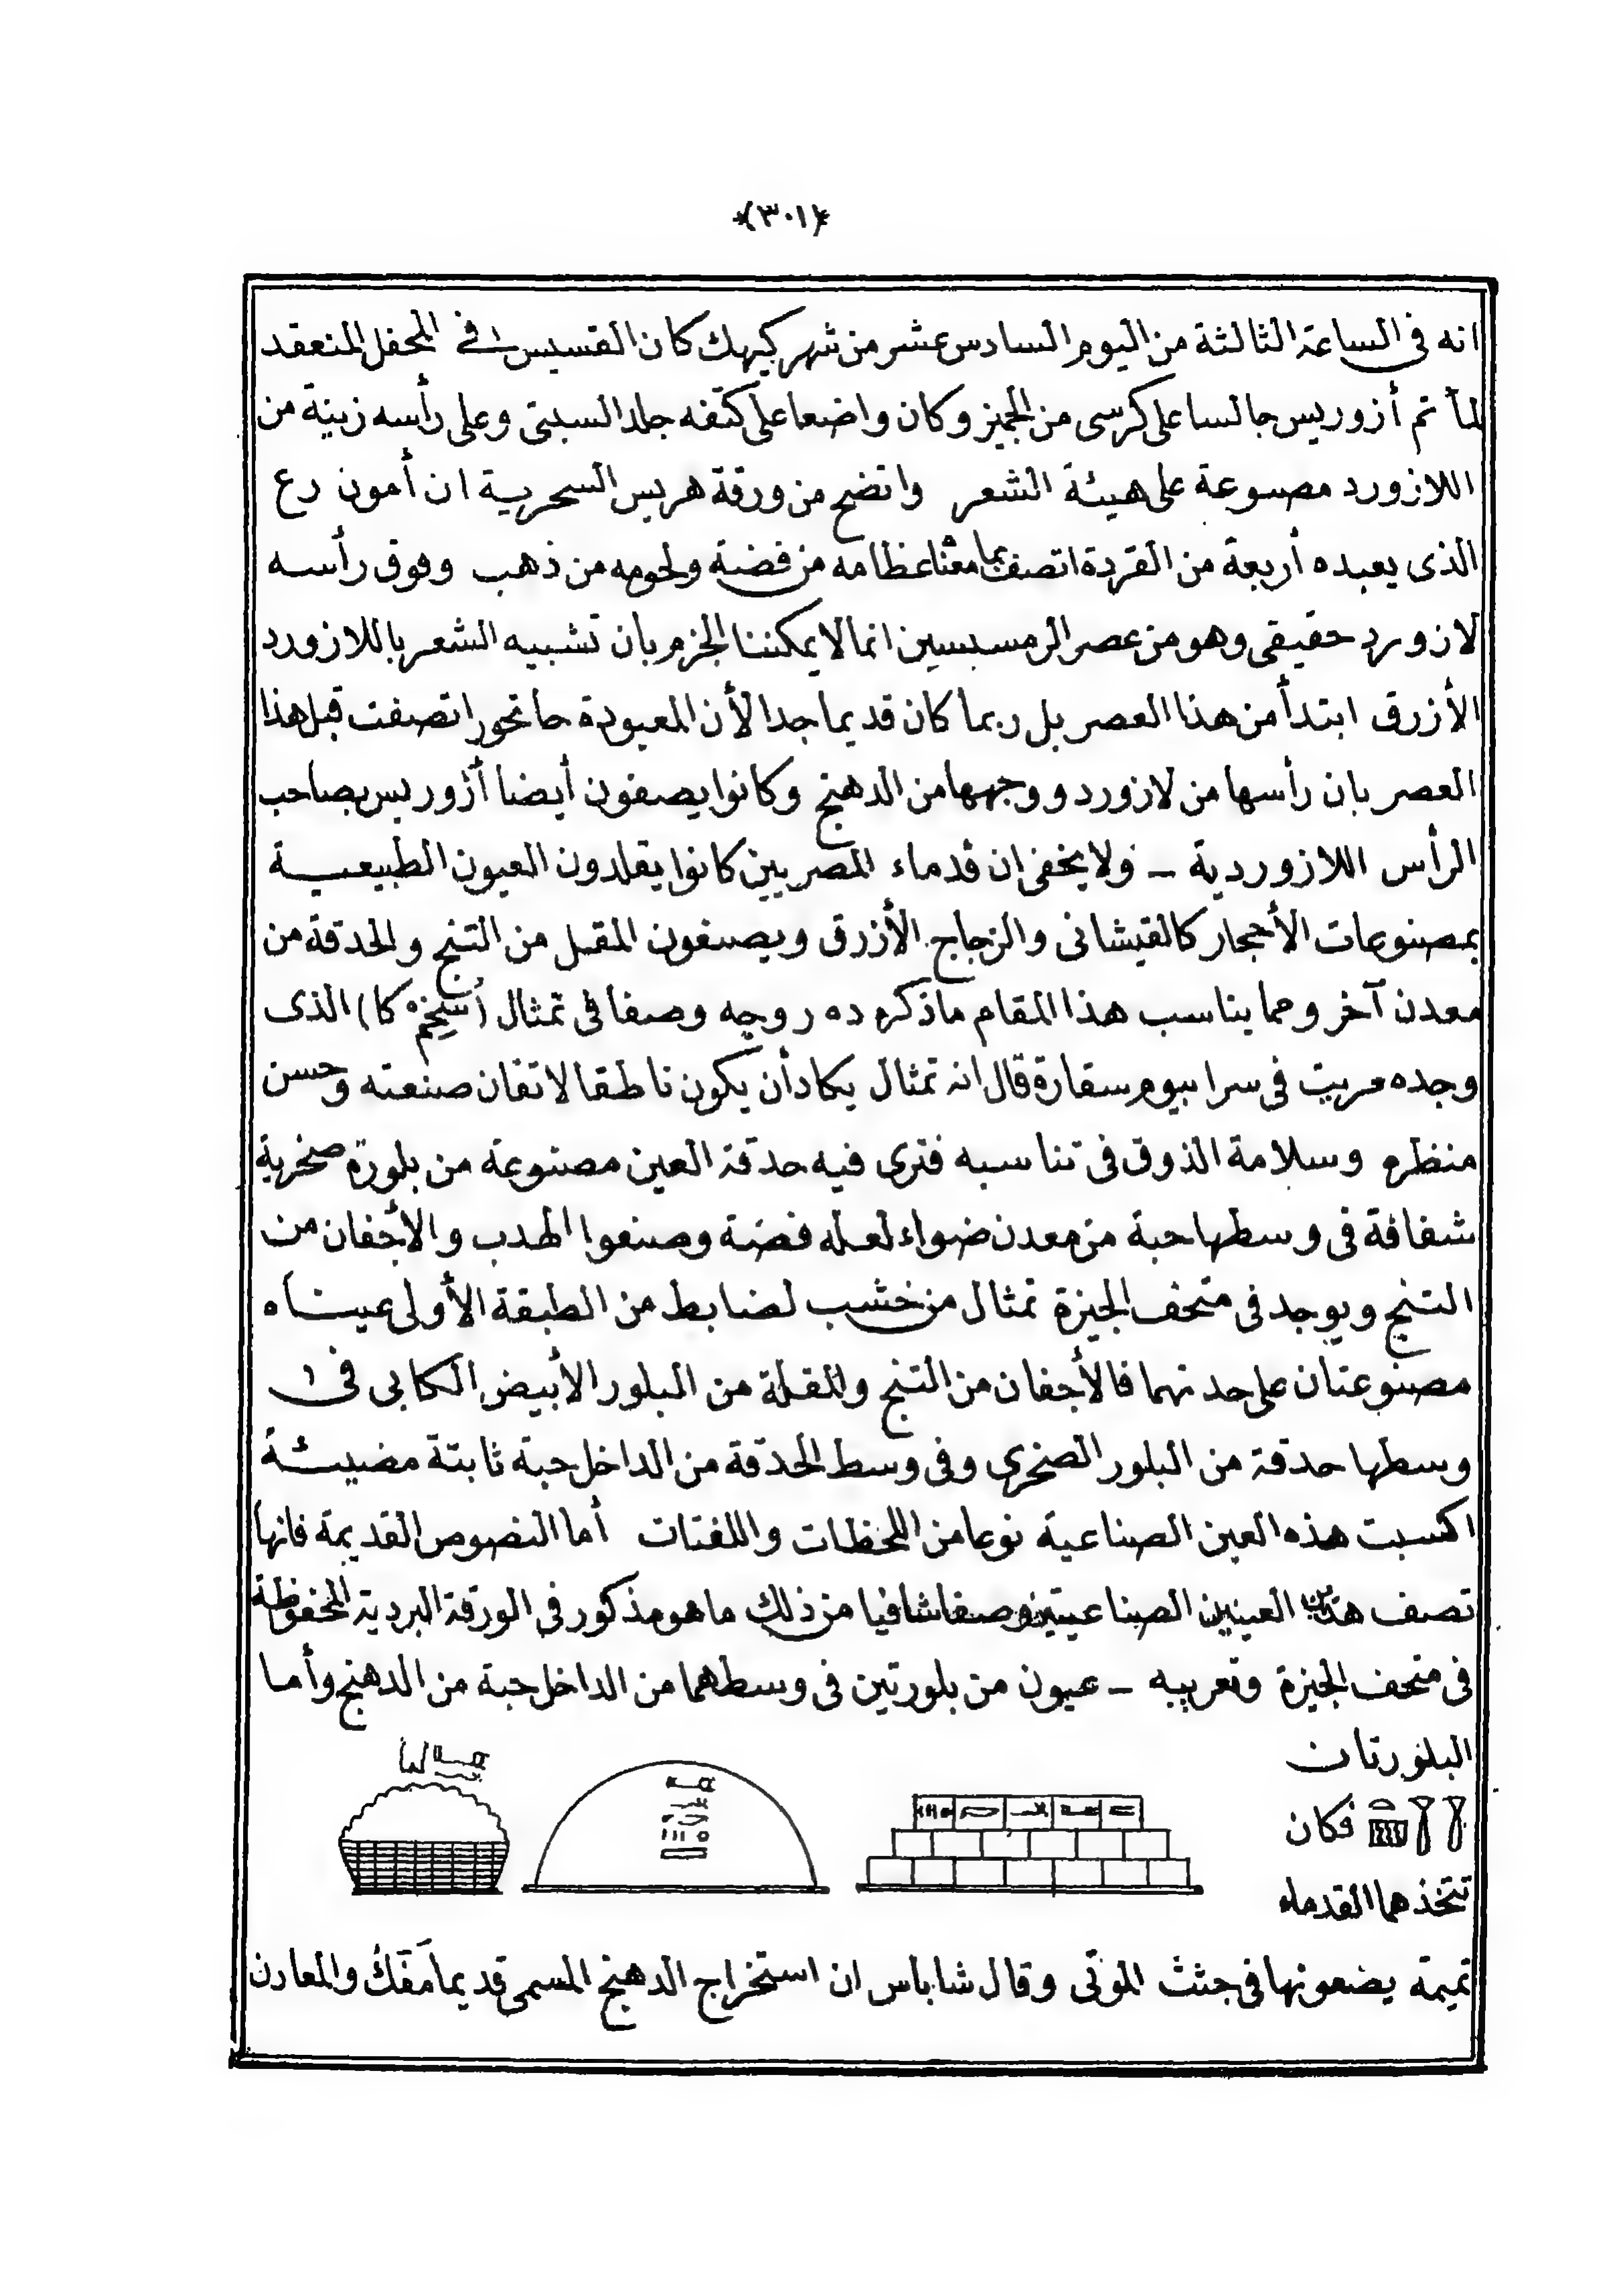 ﴿٣٠١﴾
انه فى الساعة الثالثة من اليوم السادس عشر من شهر كيهك كان القسيس فى المحفل المنعقد
لمأتم أزوريس جالسا على كرسى من الجميز وكان واضعا على كتفه جلد السبنتى وعلى رأسه زينة من
اللازورد مصنوعة على هيئة الشعر واتضح من ورقة هريس السحرية ان أمون رع
الذى يعبده أربعة من القردة اتصف بما معناه عظامه من فضة ولحومه من ذهب وفوق رأسه
لازورد حقيقى وهو من عصر الرمسيسين انما لا يمكننا الجزم بان تشبيه الشعر باللازورد
الأزرق ابتدأ من هذا العصر بل ربما كان قديما جدا لأن المعبودة حاتحور اتصفت قبل هذا
العصر بان رأسها من لازورد ووجهها من الدهنج وكانوا يصفون أيضا أزوريس بصاحب
الرأس اللازوردية – ولا يخفى ان قدماء المصريين كانوا يقلدون العيون الطبيعية
بمصنوعات الأحجار كالقيشانى والزجاج الأزرق ويصنعون المقل من التنج والحدقة من
معدن آخر ومما يناسب هذا المقام ما ذكره ده روجه وصفا فى تمثال (سخم كا) الذى
وجده مريت فى سرابيوم سقارة قال انه تمثال يكاد أن يكون ناطقا لاتقان صنعته وحسن
منظره وسلامة الذوق فى تناسبه فترى فيه حدقة العين مصنوعة من بلورة صخرية
شفافة فى وسطها حبة من معدن ضواء لعله فضة وصنعوا الهدب والأجفان من
التنج ويوجد فى متحف الجيزة تمثال من خشب لضابط من الطبقة الأولى عيناه
مصنوعتان على حدتهما فالأجفان من التنج والمقلة من البلور الأبيض الكابى فى
وسطها حدقة من البلور الصخرى وفى وسط الحدقة من الداخل حبة ثابتة مضيئة
اكسبت هذه العين الصناعية نوعا من اللحظات واللفتات أما النصوص القديمة فانها
تصف هذين العينين الصناعيتين وصفا شافيا من ذلك ما هو مذكور فى الورقة البردية المحفوظة
فى متحف الجيزة وتعريبه – عيون من بلورتين فى وسطهما من الداخل حبة من الدهنج وأما
البلورتان
فكان
تتخذهما القدماء
تميمة يضعونها فى جثث الموتى وقال شاباس ان استخراج الدهنج المسمى قديما مَفَكْ والمعادن